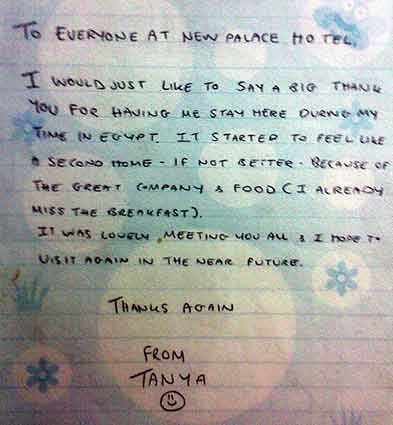 TO EVERYONE AT NEW PALACE HOTEL,
I WOULD JUST LIKE TO SAY A BIG THANK
YOU FOR HAVING ME STAY HERE DURING MY
TIME IN EGYPT. IT STARTED TO FEEL LIKE
A SECOND HOME - IF NOT BETTER - BECAUSE OF
THE GREAT COMPANY & FOOD (I ALREADY
MISS THE BREAKFAST).
IT WAS LOVELY MEETING YOU ALL & I HOPE TO
VISIT AGAIN IN THE NEAR FUTURE.
THANKS AGAIN
FROM
TANYA